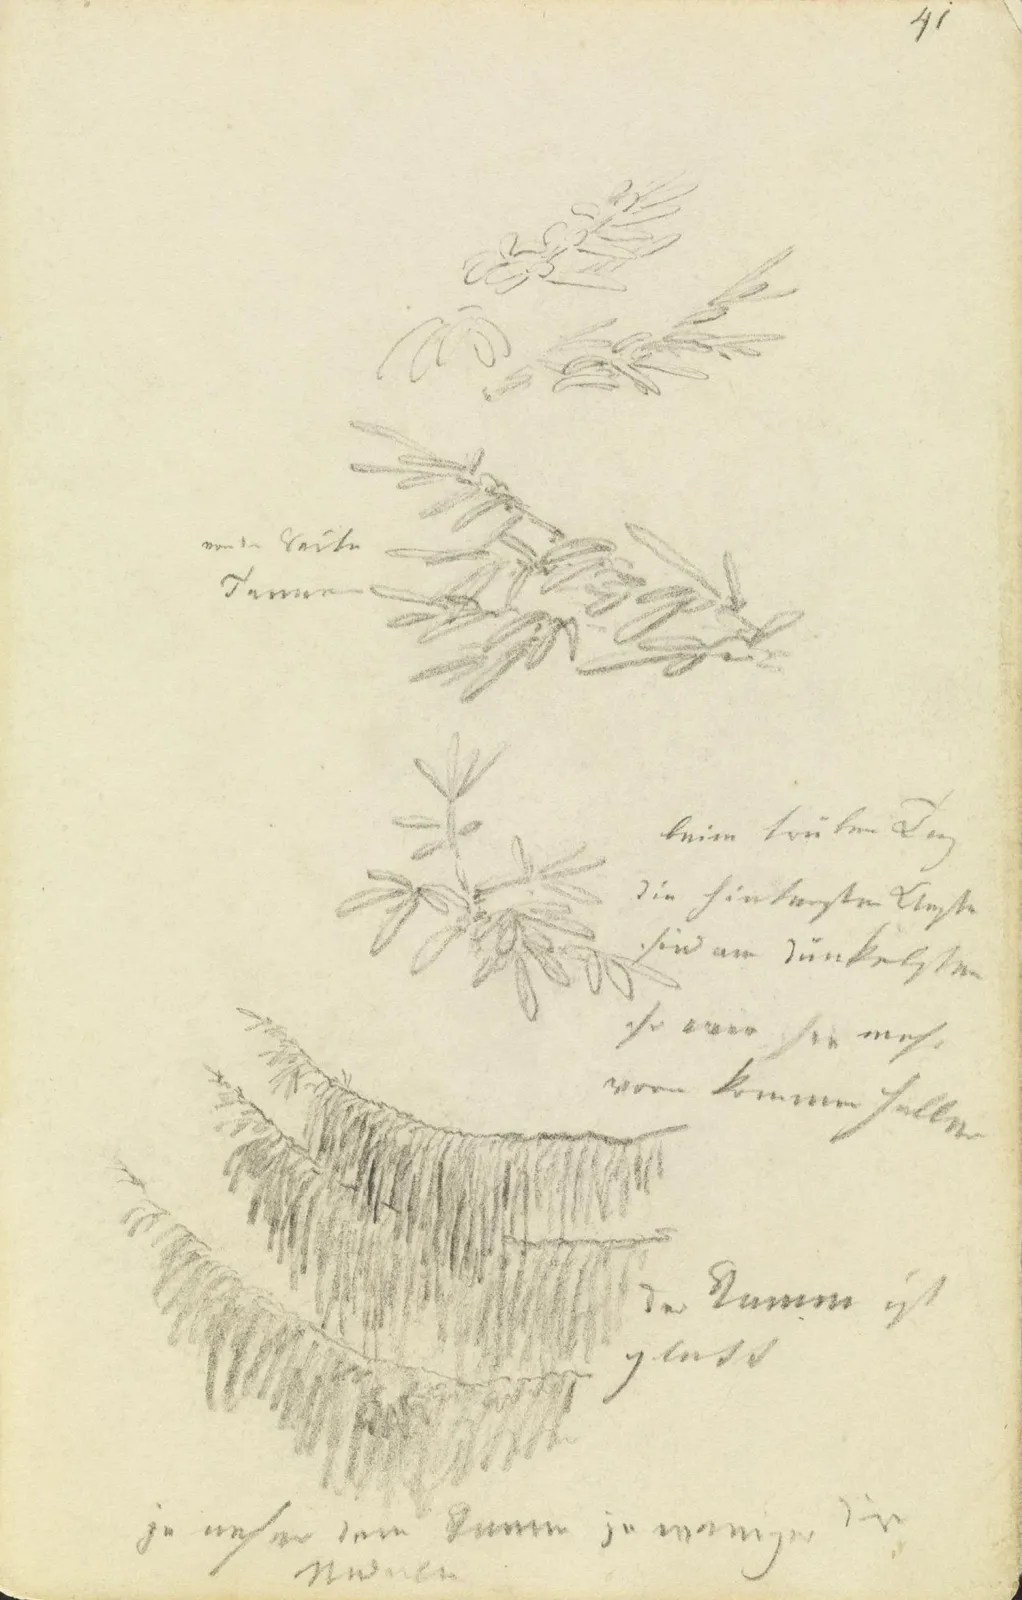 41
von der Seite
Tanne
beim trüben Tag
die hintersten Aeste
sind am dunkelsten
so wie sie mehr
vorn kommen heller
der Stamm ist
glatt
je näher dem Stamm je weniger die